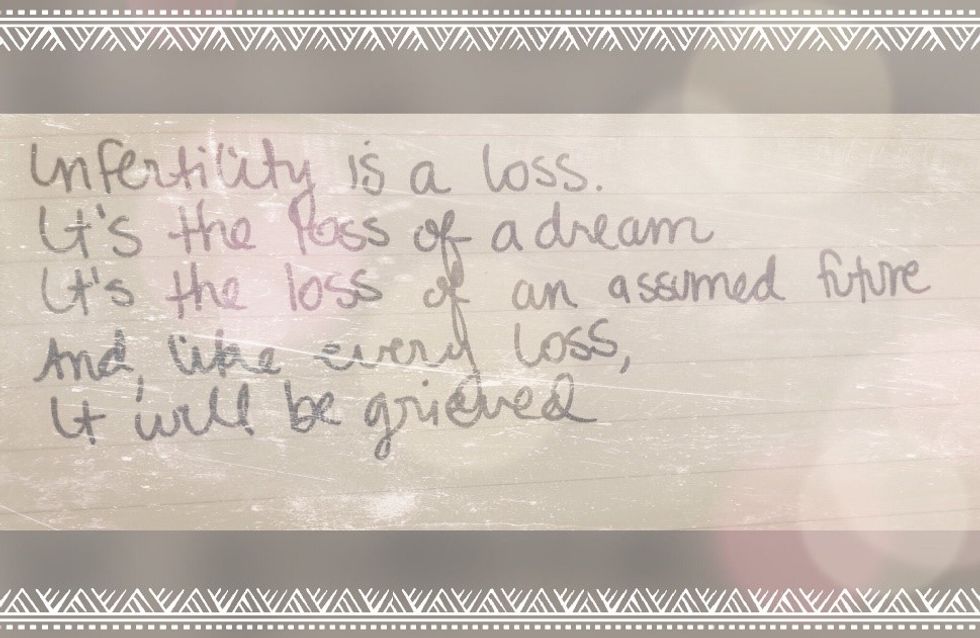 Infertility is a loss.
It's the loss of a dream
It's the loss of an assumed future
And, like every loss,
It will be grieved